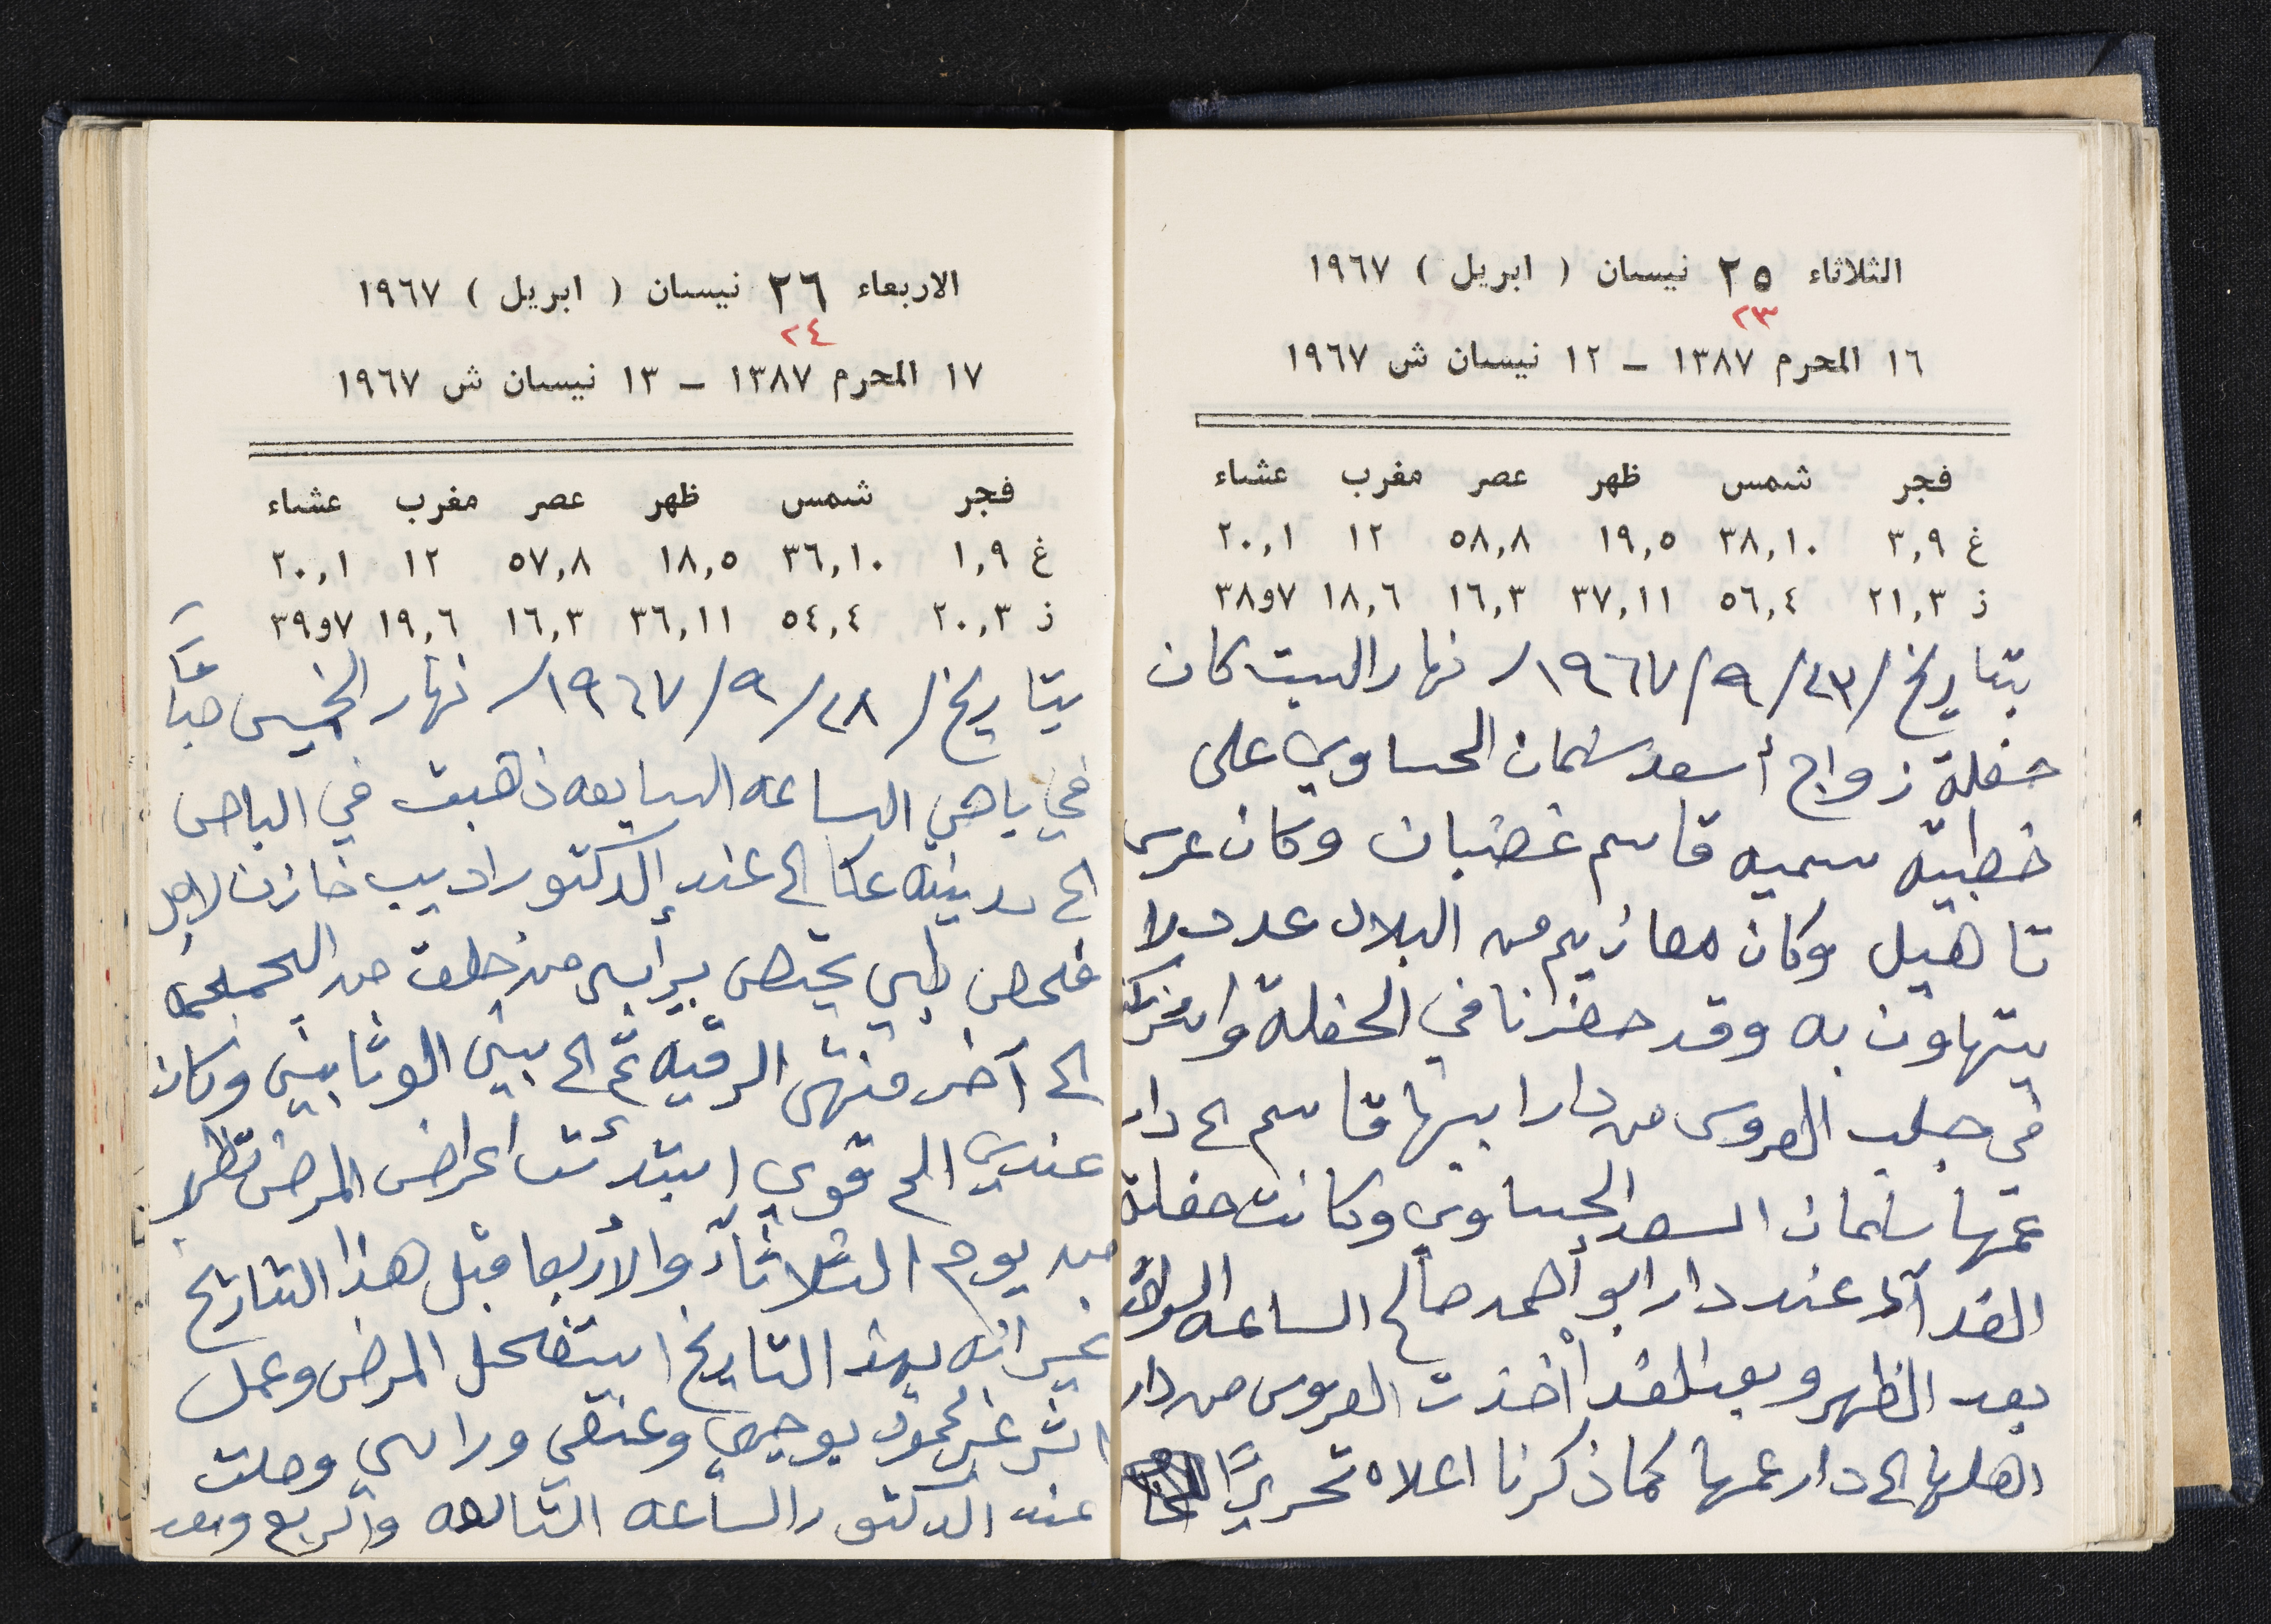 الثلاثاء ٢٥ نيسان ( ابريل ) ١٩٦٧
٢٣
١٦ المحرم ١٣٨٧ ــ ١٢ نيسان ش ١٩٦٧
فجر شمس ظهر عصر مغرب عشاء
غ ٣,٩ ٣٨,١٠ ١٩,٥ ٥٨,٨ ١٢ ٢٠,١
ز ٢١,٣ ٥٦,٤ ٣٧,١١ ١٦,٣ ١٨,٦ ٣٨و٧
بتاريخ /٢٣/٩/١٩٦٧/ نهار السبت كان
حفلة زواج أسعد سلمان الحساوي على
خطيبته سميه قاسم غضبان وكان عرس
تاهيل وكان معازيم من البلاد عدد لا
يتهاون به وقد حضرنا في الحفلة واشتركنا
في جلب العروس من دار ابيها قاسم الى دار
عمها سلمان السعد الحساوي وكانت حفلة
الغدآء عند دار ابو أحمد صالح الساعه
بعد الظهر وبعد الغدا أخذت العروس من دار
اهلها الى دار عمها كما ذكرنا اعلاه تحريرًا
الاربعاء ٢٦ نيسان ( ابريل ) ١٩٦٧
٢٤
١٧ المحرم ١٣٨٧ ــ ١٣ نيسان ش ١٩٦٧
فجر شمس ظهر عصر مغرب عشاء
غ ١,٩ ٣٦,١٠ ١٨,٥ ٥٧,٨ ١٢ ٢٠,١
ز ٢٠,٣ ٥٤,٤ ٣٦,١١ ١٦,٣ ١٩,٦ ٣٩و٧
بتاريخ /٢٨/٩/١٩٦٧/ نهار الخميس صباحًا
في باص الساعه السابعه ذهبت في الباص
الى مدينة عكا الى عند الدكتور اديب خازن لاجل
فحص طبي يختص براسي من خلف من الجمجمه
الى آخر منتهى الرقبه ثم الى بين الوتابين وكان
عندي الم قوي ابتدئت اعراض المرض تظهر
من يوم الثلاثآء والأربعا قبل هذا التاريخ
غير انه بهذ التاريخ استفحل المرض وعمل
اثر غير محمود بوجهي وعنقي وراسي وصلت
عند الدكتور الساعه الثامنه والربع وبعد